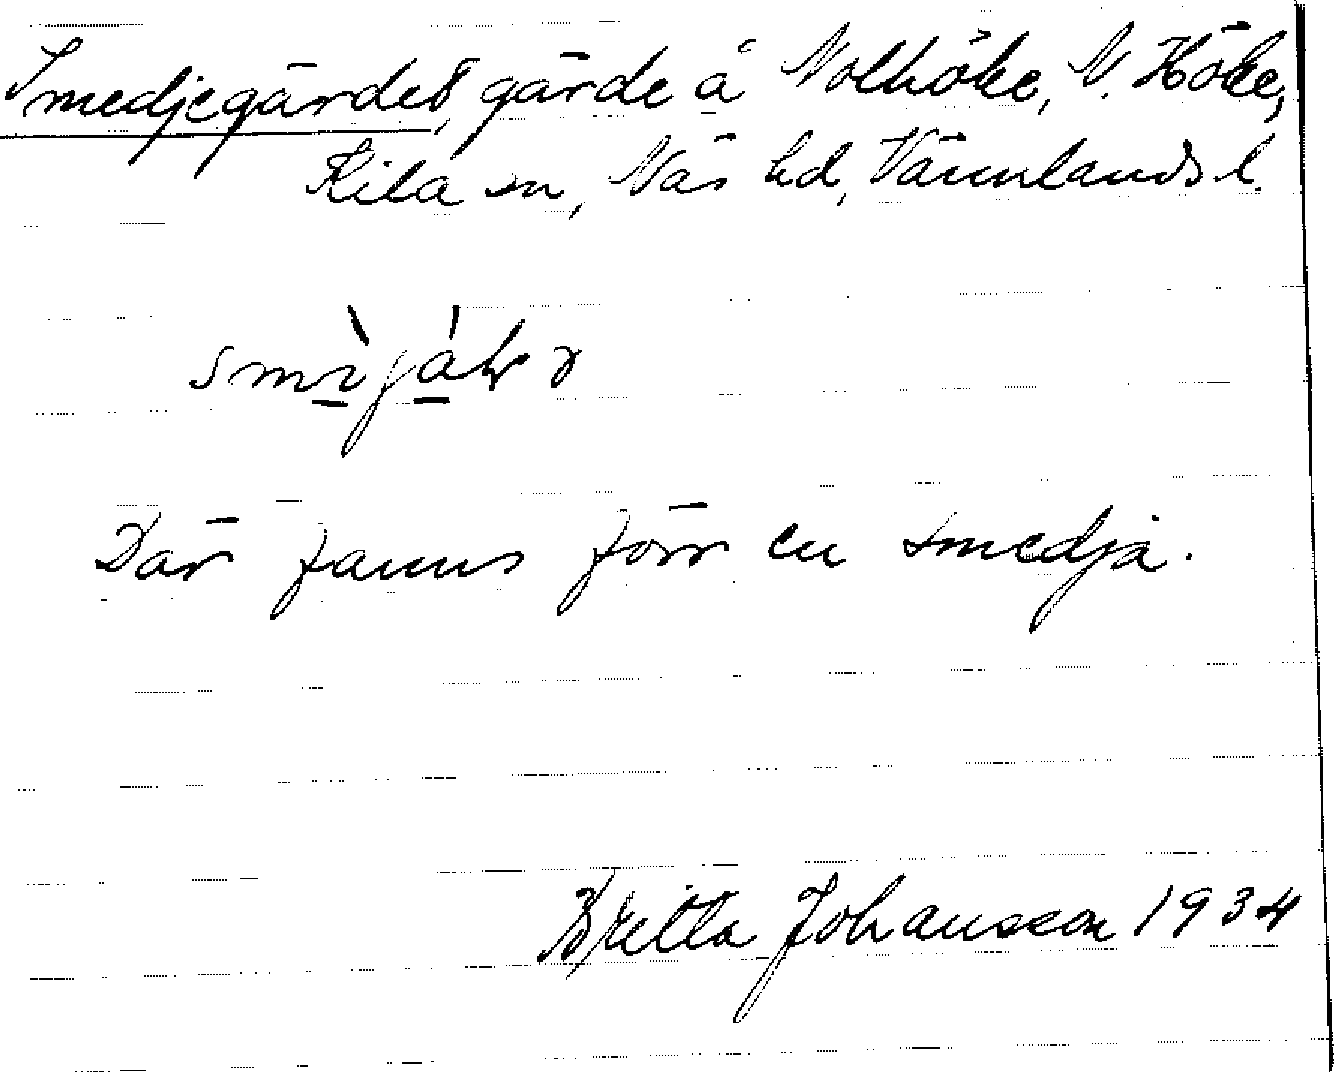 Smedjegärdet, gärde å Nolhöke, N. Höke,
Kila sn, Näs hd, Värmlands l.
Där fanns förr en smedja.
Britta Johansson 1934